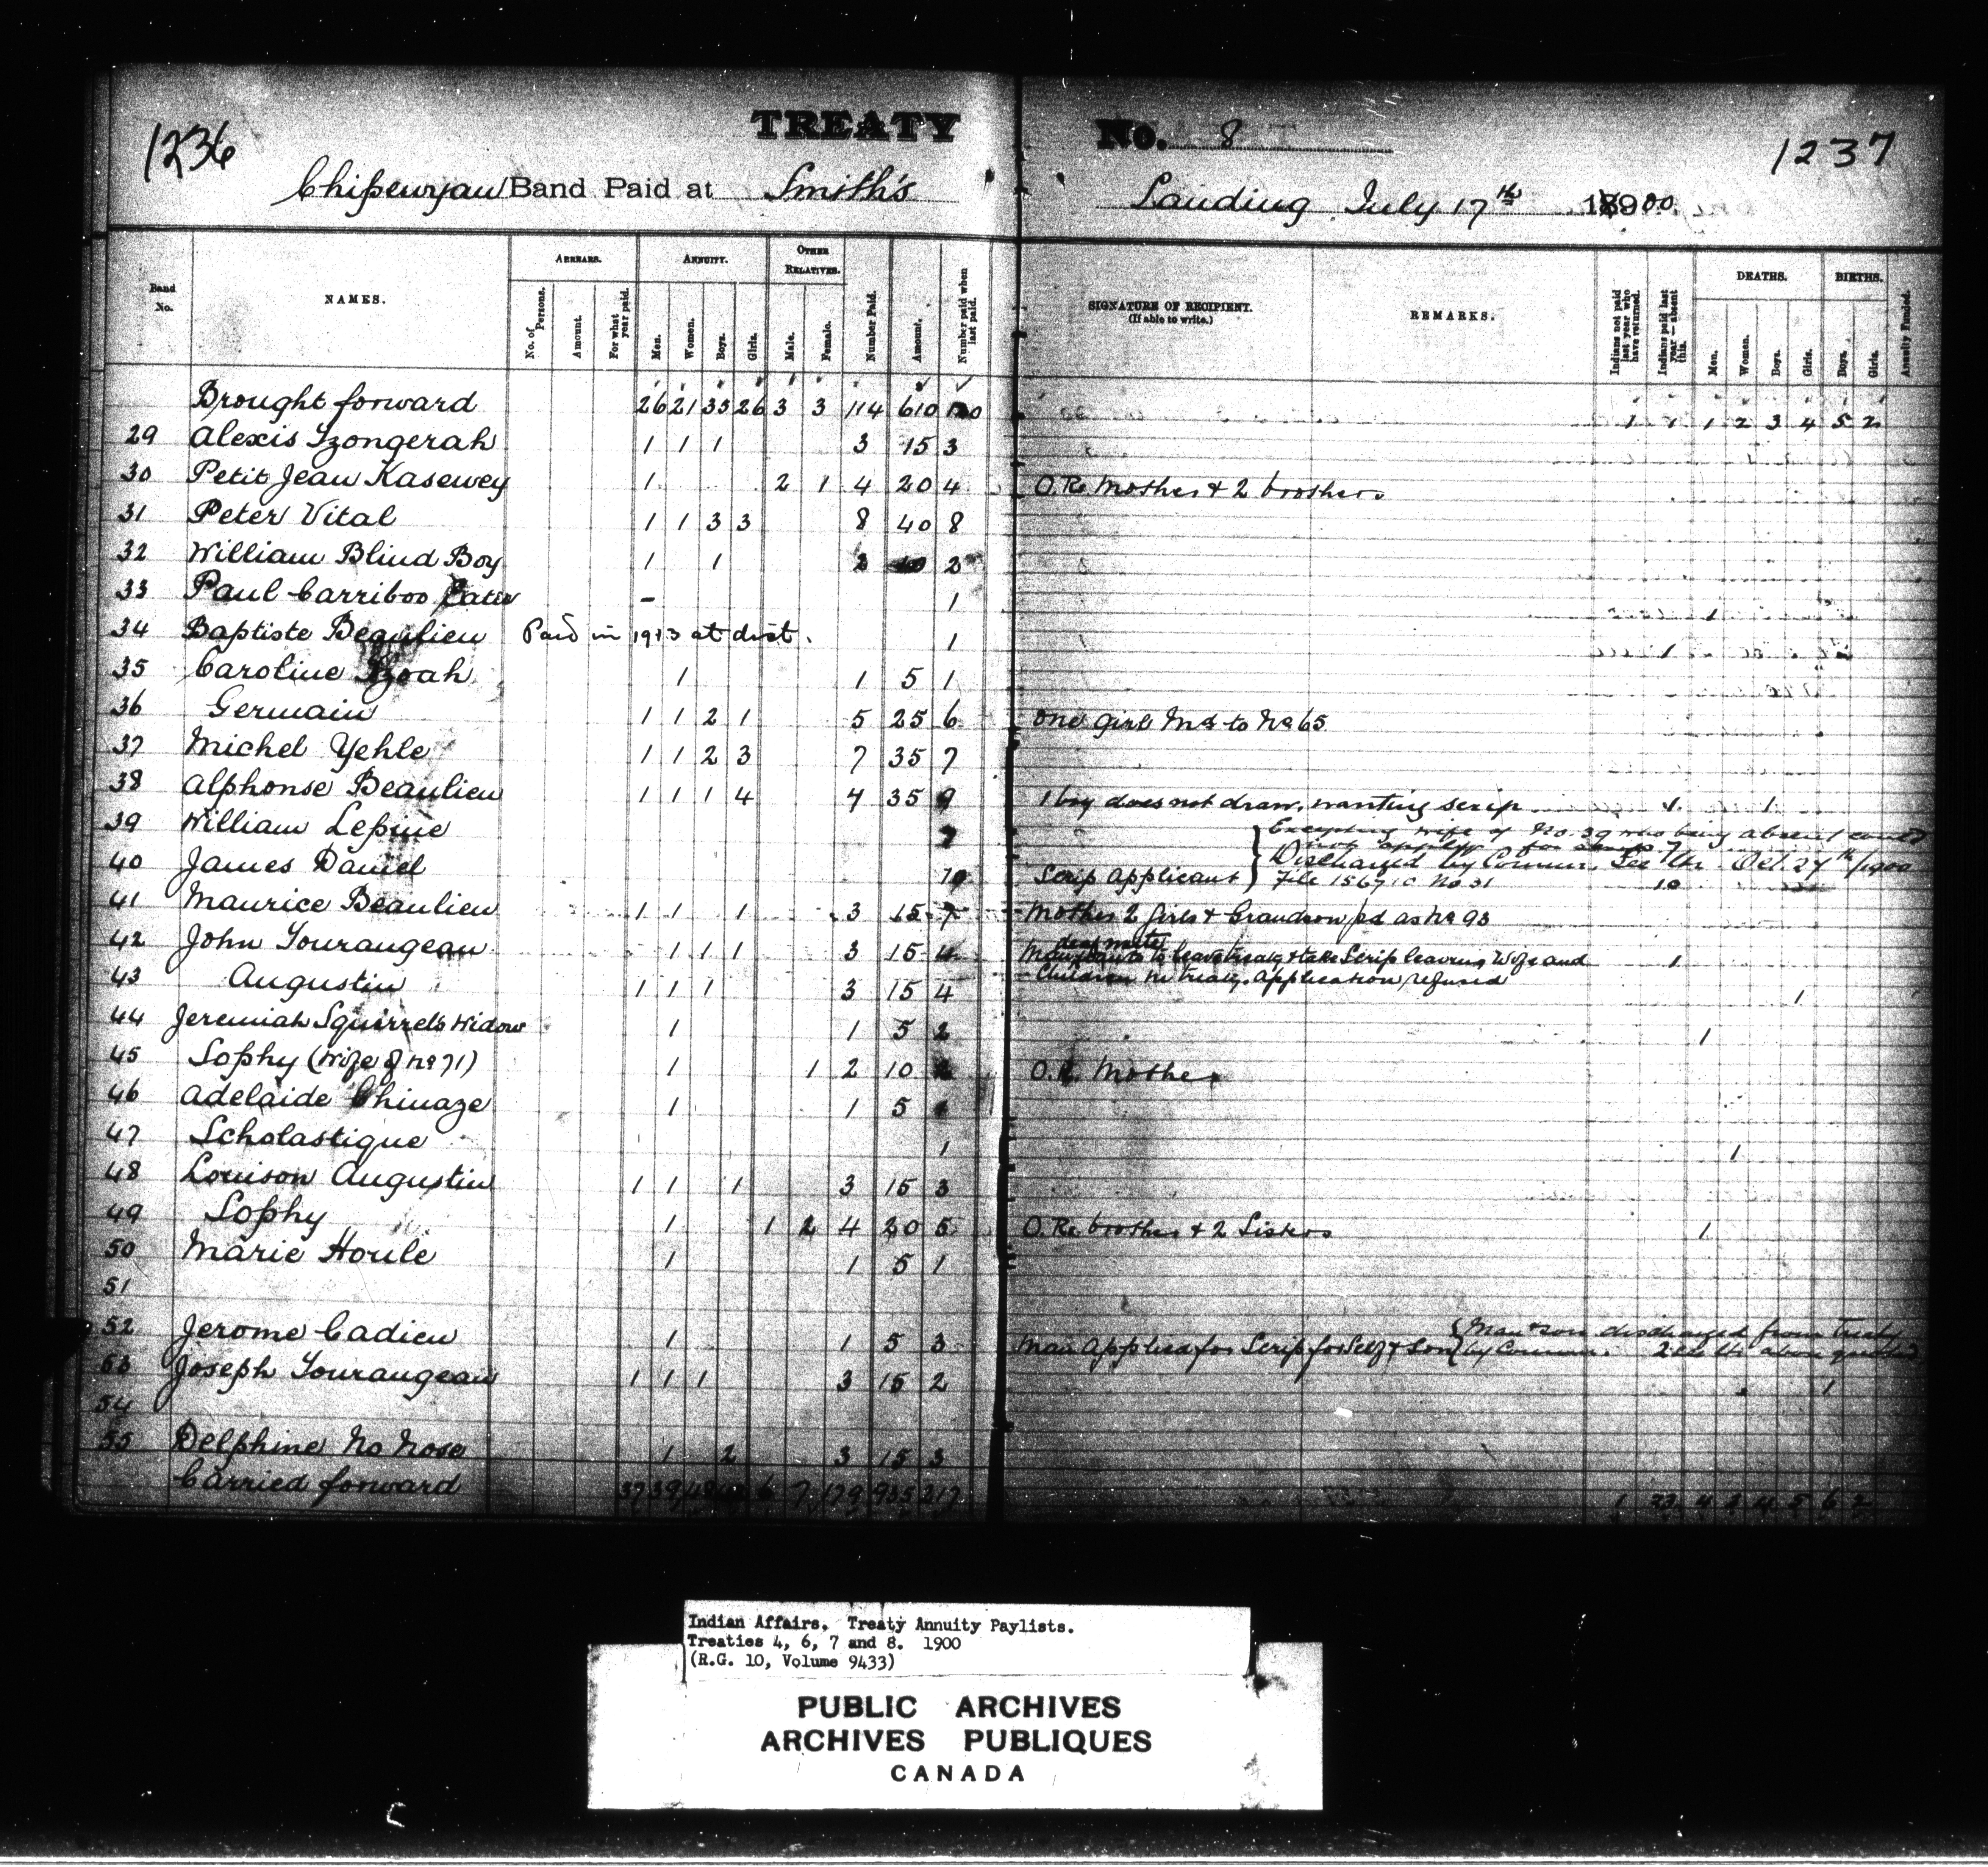 1236
TREATY No. 8
1237
Chipewyan Band Paid at Smith's Landing July 17th 1900
Band No.
NAMES.
ARREARS.
No. of Persons.
Amount.
For what year paid.
ANNUITY.
Men.
Women.
Boys.
Girls.
OTHER RELATIVES.
Male.
Female.
Number Paid.
Amount.
Number paid when last paid.
SIGNATURE OF RECIPIENT.
(If able to write.)
REMARKS.
Indians not paid last year who have returned.
Indians paid last year—absent this.
DEATHS.
Men.
Women.
Boys.
Girls.
BIRTHS.
Boys.
Girls.
Annuity Funded.
Brought forward 26 21 35 26 3 3 114 610 1 1 1 2 3 4 5 2
29 Alexis Izongerah 1 1 1 3 15 3
30 Petit Jean Kasewey 1 2 1 4 20 4 O.R. Mother & 2 brothers
31 Peter Vital 1 1 3 3 8 40 8
32 William Blind Boy 1 1 2 2
33 Paul Carriboo Eater - 1 1
34 Baptiste Beaulieu Paid in 1913 at dist. 1 1
35 Caroline 1 1 5 1
36 Germain 1 1 2 1 5 25 6 One girl Md to No 65
37 Michel Yehle 1 1 2 3 7 35 7
38 Alphonse Beaulieu 1 1 1 4 4 35 9 1 boy does not draw, wanting scrip 1 1
39 William Lepine 7 Excepting wife of No. 39 who being absent could not apply for scrip 7
40 James Daniel 10 Scrip Applicant } Discharged by Commr. See Ltr. Oct. 27th/1900 File 156710 No 31 10
41 Maurice Beaulieu 1 1 1 3 15 7 Mother 2 girls & Grandson pd as No 93
42 John Tourangeau 1 1 1 3 15 4 Man wants to leave treaty & take Scrip leaving Wife and 1
deaf mute
Children in treaty. Application refused
43 Augustin 1 1 1 3 15 4 1
44 Jeremiah Squirrel's Widow 1 1 5 2 1
45 Sophy (Wife of No 71) 1 1 2 10 O.R. Mother
46 Adelaide Chinaze 1 1 5
47 Scholastique 1 1
48 Louison Augustin 1 1 1 3 15 3
49 Sophy 1 1 2 4 20 5 O.R. brother & 2 Sisters 1
50 Marie Houle 1 1 5 1
51
52 Jerome Cadieu 1 1 5 3 Man Applied for Scrip for Self & Son { Man & son discharged from treaty by Commr. 2 See Ltr above quoted
53 Joseph Tourangeau 1 1 1 3 15 2 1
54
55 Delphine No Nose 1 2 3 15 3
Carried forward 37 39 48 6 7 179 935 217 1 33 4 4 5 6 2
Indian Affairs. Treaty Annuity Paylists.
Treaties 4, 6, 7 and 8. 1900
(R.G. 10, Volume 9433)
PUBLIC ARCHIVES
ARCHIVES PUBLIQUES
CANADA